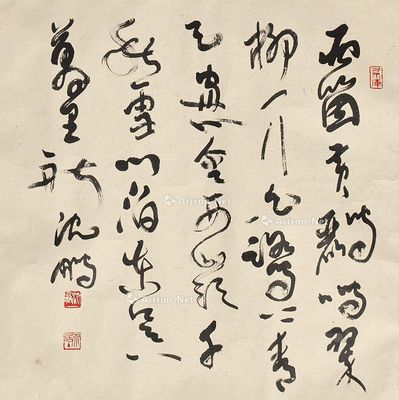 两个黄鹂鸣翠
柳一行白鹭上青
天窗含西岭千
秋雪门泊东吴
万里船 沈鹏
Artron.Net
Artron.Net
Artron.Net
Artron.Net